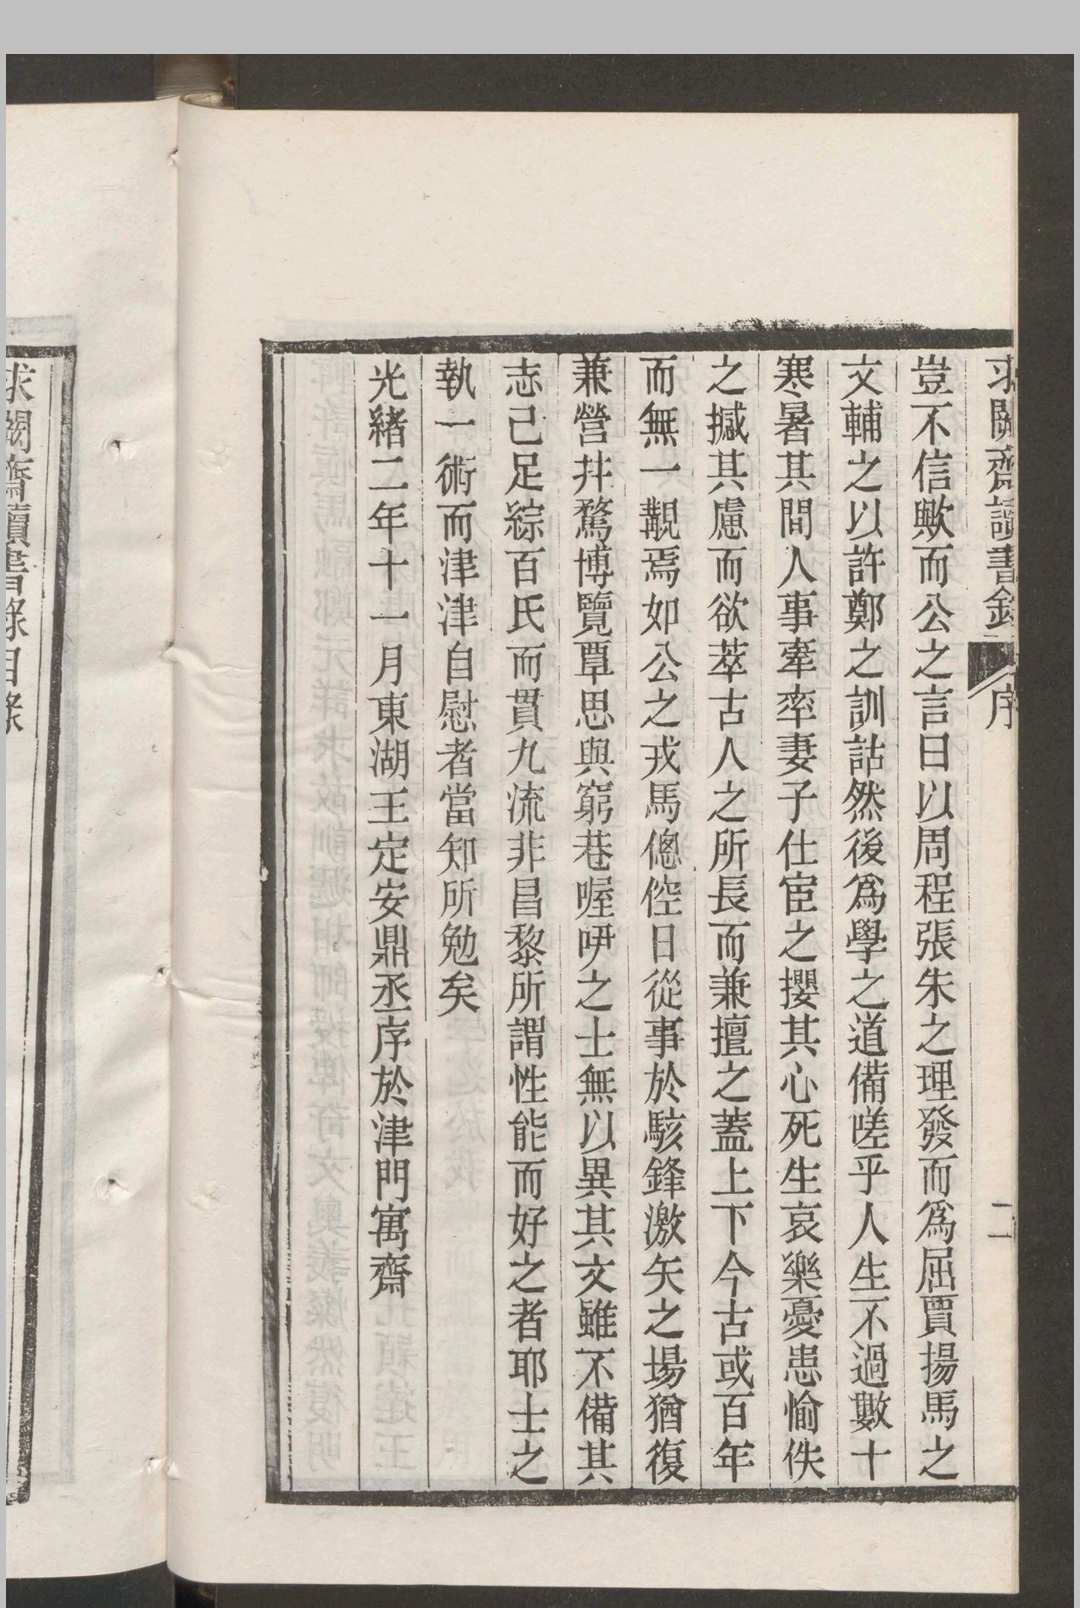 求闕齋讀書錄 序 二
豈不信歟而公之言曰以周程張朱之理發而爲屈賈揚馬之
文輔之以許鄭之訓詁然後爲學之道備嗟乎人生不過數十
寒暑其間人事牽率妻子仕宦之攖其心死生哀樂憂患愉佚
之撼其慮而欲萃古人之所長而兼擅之蓋上下今古或百年
而無一覯焉如公之戎馬傯倥日從事於駭鋒激矢之場猶復
兼營拜騖博覽覃思與窮巷喔咿之士無以異其文雖不備其
志已足綜百氏而貫九流非昌黎所謂性能而好之者耶士之
執一術而津津自慰者當知所勉矣
光緒二年十一月東湖王定安鼎丞序於津門寓齋
求闕齋讀書錄目錄